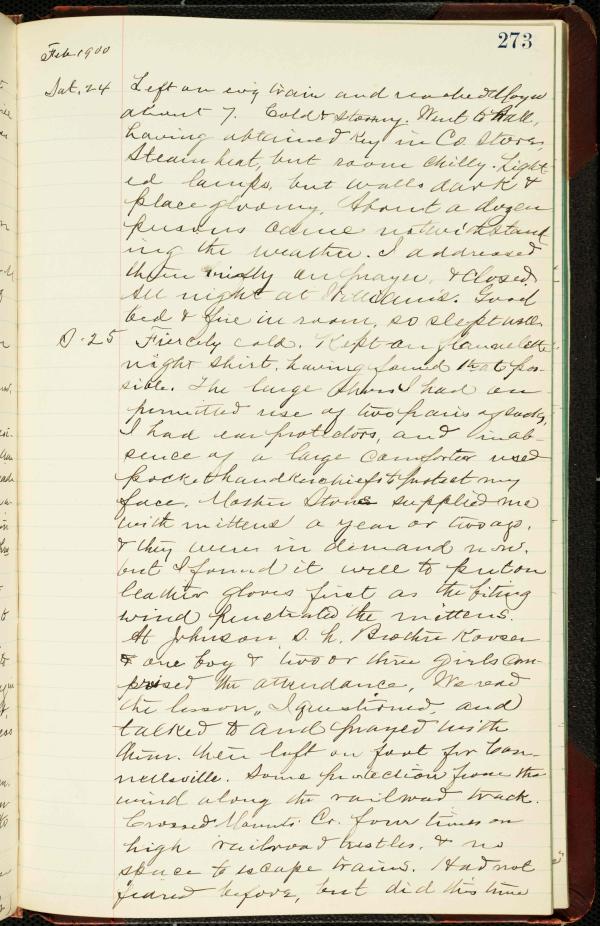 273
Feb. 1900
Sat. 24 Left on evg train and reached Moyer
about 7. Cold & stormy. Went to Hall,
having obtained key in Co. Store,
Steam heat, but room chilly. Light-
ed lamps, but walls dark &
place gloomy. About a dozen
persons came notwithstand-
ing the weather. I addressed
them briefly on prayer, & closed.
All night at Williams's. Good
bed & fire in room, so slept well.
S. 25 Fiercely cold. Kept on flannelette
night shirt, having found that pos-
sible. The large shoes I had on
permitted use of two pairs of socks,
I had ear protectors, and in ab-
sence of a large comforter used
pocket handkerchiefs to protect my
face. Mother Stone supplied me
with mittens a year or two ago,
& they were in demand now,
but I found it well to put on
leather gloves first as the biting
wind penetrated the mittens.
At Johnson S. h. Brother
& one boy & two or three girls com-
prised the attendance. We read
the lesson, I questioned, and
talked to and prayed with
them. then left on foot for Con-
nellsville. Some protection from the
wind along the railroad track.
Crossed Mounts Cr. four times on
high railroad trestles, & no
space to escape trains. Had not
feared before, but did this time